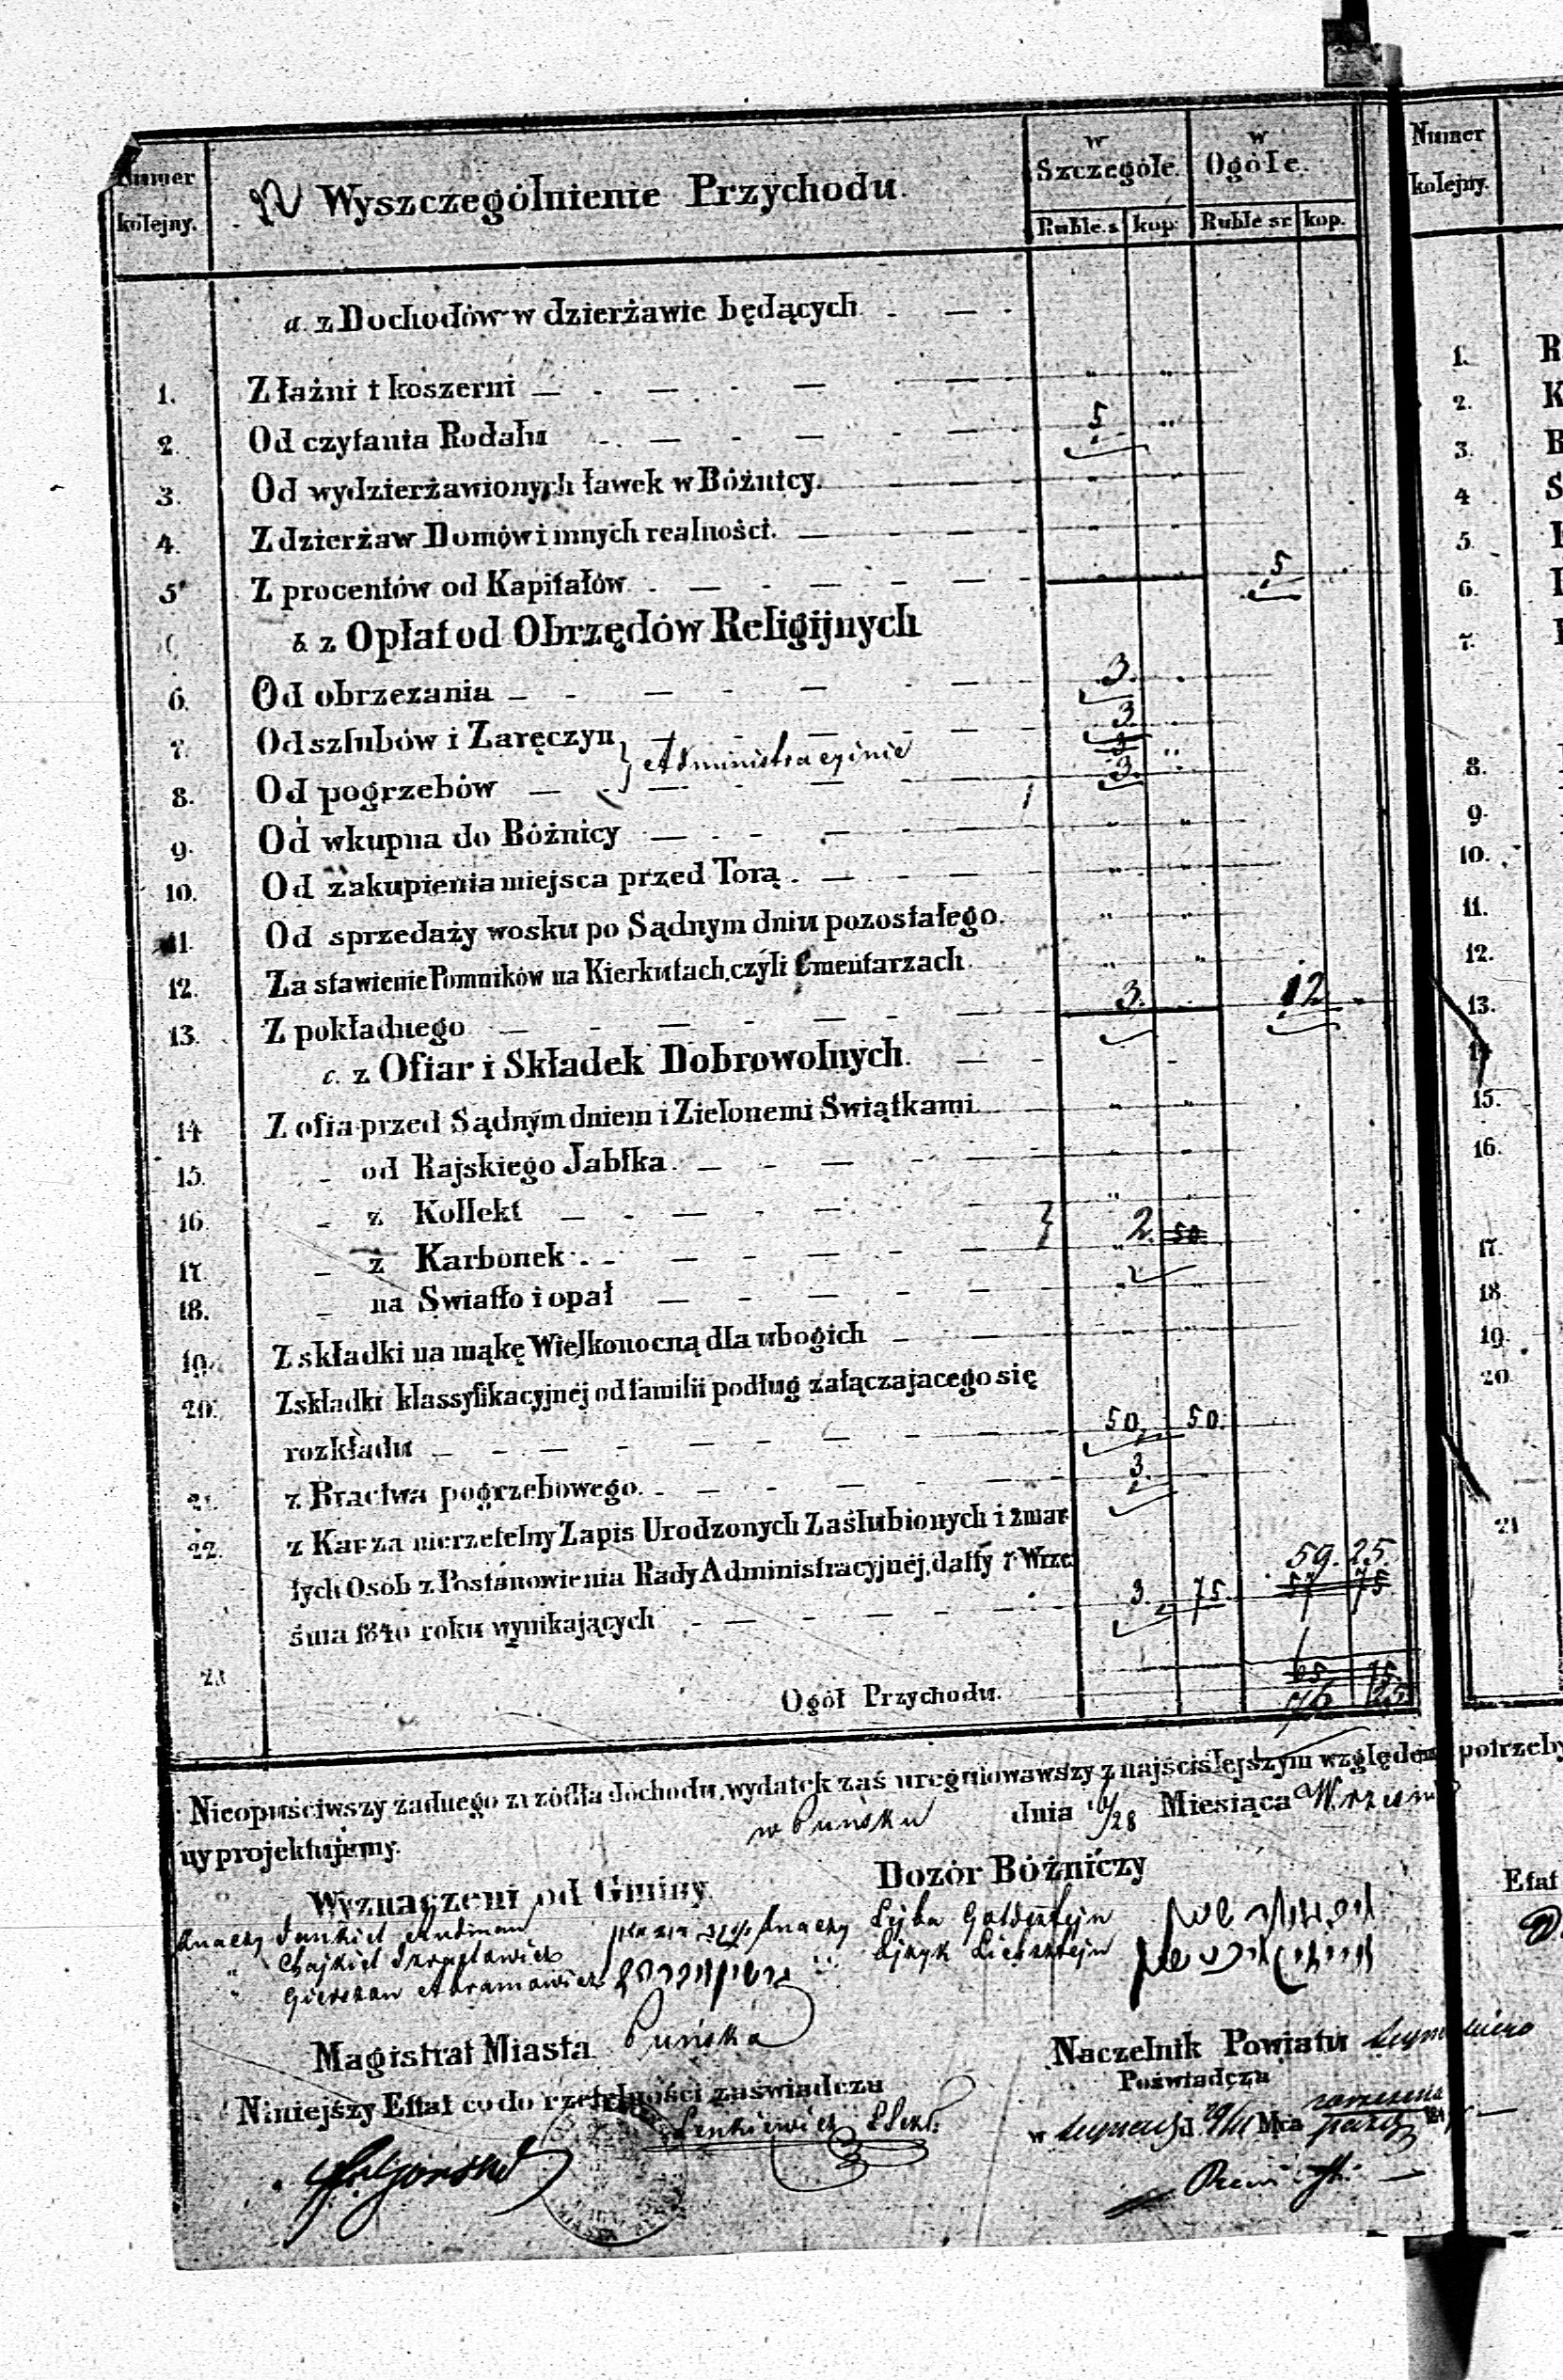 Numer kolejny.
Wyszczególnienie Przychodu.
w Szczególe.
w Ogóle.
Ruble. s kop: Ruble sr. kop.
a. z Dochodów w dzierżawie będących
1. Z łaźni i koszerni " "
2. Od czytania Rodału 5 "
3. Od wydzierżawionych ławek w Bóżnicy. " "
4. Z dzierżaw Domów i innych realności. " "
5. Z procentów od Kapitałów " " 5
b. z Opłat od Obrzędów Religijnych
6. Od obrzezania 3.
7. Od szlubów i Zaręczyn 3.
Administracyjnie
8. Od pogrzebów 3.
9. Od wkupna do Bóżnicy " "
10. Od zakupienia miejsca przed Torą. " "
11. Od sprzedaży wosku po Sądnym dniu pozostałego. " "
12. Za stawienie Pomników na Kierkutach, czyli Cmentarzach " "
13. Z pokładnego 3. 12
c. z Ofiar i Składek Dobrowolnych.
14 Z ofia przed Sądnym dniem i Zielonemi Swiątkami " "
15. od Rajskiego Jabłka. " "
16. z Kollekt " "
17. z Karbonek 2. 50
18. na Swiatło i opał " "
19. Z składki na mąkę Wielkonocną dla ubogich " "
20. Z składki klassyfikacyjnej od familii podług załączajacego się
rozkładu 50. 50.
21. z Bractwa pogrzebowego. 3.
22. z Kar za nierzetelny Zapis Urodzonych Zaślubionych i zmar-
łych Osób z Postanowienia Rady Administracyjnej, datty 7 Wrze
śnia 1840 roku wynikających 3. 75. 59. 25.
57 75
23
65 75
Ogół Przychodu. 76 25
Nieopuściwszy żadnego zrzódła dochodu, wydatek zaś uregulowawszy z najściślejszym względem potrzeby
ny projektujemy.
w Puńsku dnia 16/28 Miesiąca Wrześni
Wyznaczeni od Gminy. Dozór Bóżniczy
Znaczy Jankiel Rudman Znaczy Lejba Goldsztejn
" Chajkiel Ajzyk Liebsztejn
" Gierszon Abramowicz
Magistrat Miasta Puńska
Naczelnik Powiatu
Niniejszy Ettat co do rzetelności zaświadcza
Poświadcza
w d. Mca
Numer kolejny.
1. R
2. K
3. B
4 S
5.
6.
7.
8.
9.
10.
11.
12.
13.
15.
16.
17.
18
19.
20
21
Etat